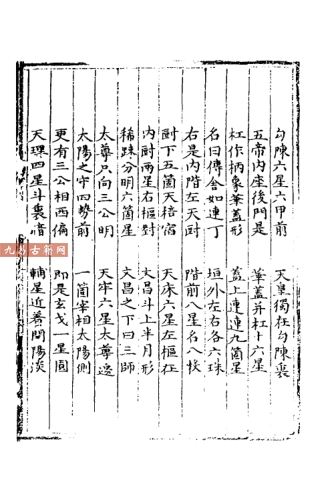 勾陳六星六甲前　天皇獨在勾陳裏
五帝內座後門是　華蓋并杠十六星
杠作柄象華蓋形　蓋上連連九箇星
名曰傳舍如連丁　垣外左右各六珠
右是內階左天厨　階前八星名八㮈
厨下五箇天棓宿　天床六星左樞在
內厨兩星右樞對　文昌斗上半月形
稀踈分明六箇星　文昌之下曰三師
太尊只向三公明　天牢六星太尊邊
太陽之守四勢前　一箇宰相太陽側
更有三公相西偏　即是玄戈一星圓
天理四星斗裏暗　輔星近著開陽淡
九易古籍网